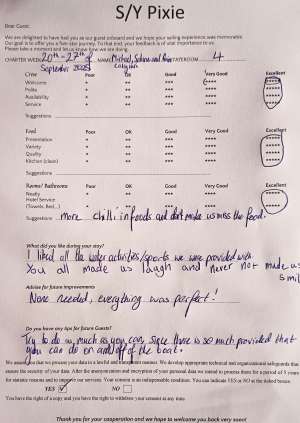 S/Y Pixie
Dear Guest
We are delighted to have had you as our guest onboard and we hope your sailing experience was memorable.
Our goal is to offer you a five-star journey. To that end, your feedback is of vast importance to us.
Please take a moment and let us know how we are doing.
CHARTER WEEK 20th-27th of NAME Michael, and STATEROOM 4
September
Crew Poor OK Good Very Good Excellent
Welcome * ** *** **** *****
Polite * ** *** **** *****
Availability * ** *** **** *****
Service * ** *** **** *****
Suggestions
Food Poor OK Good Very Good Excellent
Presentation * ** *** **** *****
Variety * ** *** **** *****
Quality * ** *** **** *****
Kitchen (clean) * ** *** **** *****
Suggestions
Rooms/ Bathrooms Poor OK Good Very Good Excellent
Ready * ** *** **** *****
Hotel Service
(Towels, Bed...) * ** *** **** *****
Suggestions more chilli in foods and don't make us miss the food.
What did you like during your stay?
I liked all the water activities/sports we were provided with
You all made us laugh and never not made us
smile
Advise for future improvements
None needed, everything was perfect!
Do you have any tips for future Guests?
Try to do as much as you can since there is so much provided that
you can do on and off of the boat.
We assure you that we process your data in a lawful and transparent manner. We develop appropriate technical and organizational safeguards that
ensure the security of your data. After the anonymization and encryption of your personal data we intend to process them for a period of 5 years
for statistic reasons and to improve our services. Your consent is an indispensable condition. You can indicate YES or NO at the linked boxes.
YES NO
You have the right of a copy and you have the right to withdraw your consent at any time
Thank you for your cooperation and we hope to welcome you back very soon!